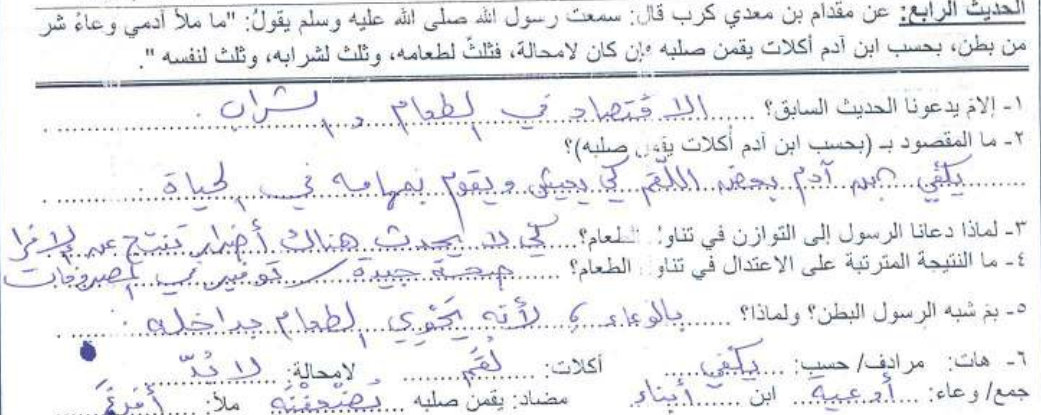 الحديث الرابع: عن مقدام بن معدي كرب قال: سمعت رسول الله صلى الله عليه وسلم يقولُ: "ما ملأ آدمي وعاءً شر
من بطن، بحسب ابن آدم أكلات يقمن صلبه فإن كان لامحالة، فثلثٌ لطعامه، وثلث لشرابه، وثلث لنفسه ".
١- إلامَ يدعونا الحديث السابق؟ الاقتصاد في الطعام والشراب .
٢- ما المقصود بـ (بحسب ابن آدم أكلات يقمن صلبه)؟
يكفي ابن آدم بعض اللُّقَم كي يعيش ويقوم بمهامه في الحياة .
٣- لماذا دعانا الرسول إلى التوازن في تناول الطعام؟ كي لا يحدث هناك أضرار تنتج عن الإفرا
٤- ما النتيجة المترتبة على الاعتدال في تناول الطعام؟ صحة جيدة توفير في المصروفات
٥- بمَ شبه الرسول البطن؟ ولماذا؟ بالوعاء ، لأنه يَحْوِي الطعام بداخله .
٦- هات: مرادف/ حسب: يكفي أكلات: لُقَم لامحالة: لا بُدّ
جمع/ وعاء: أوعية ابن أبناء مضاد: يقمن صلبه يُضْعِفْنَه ملأ: أفرغَ